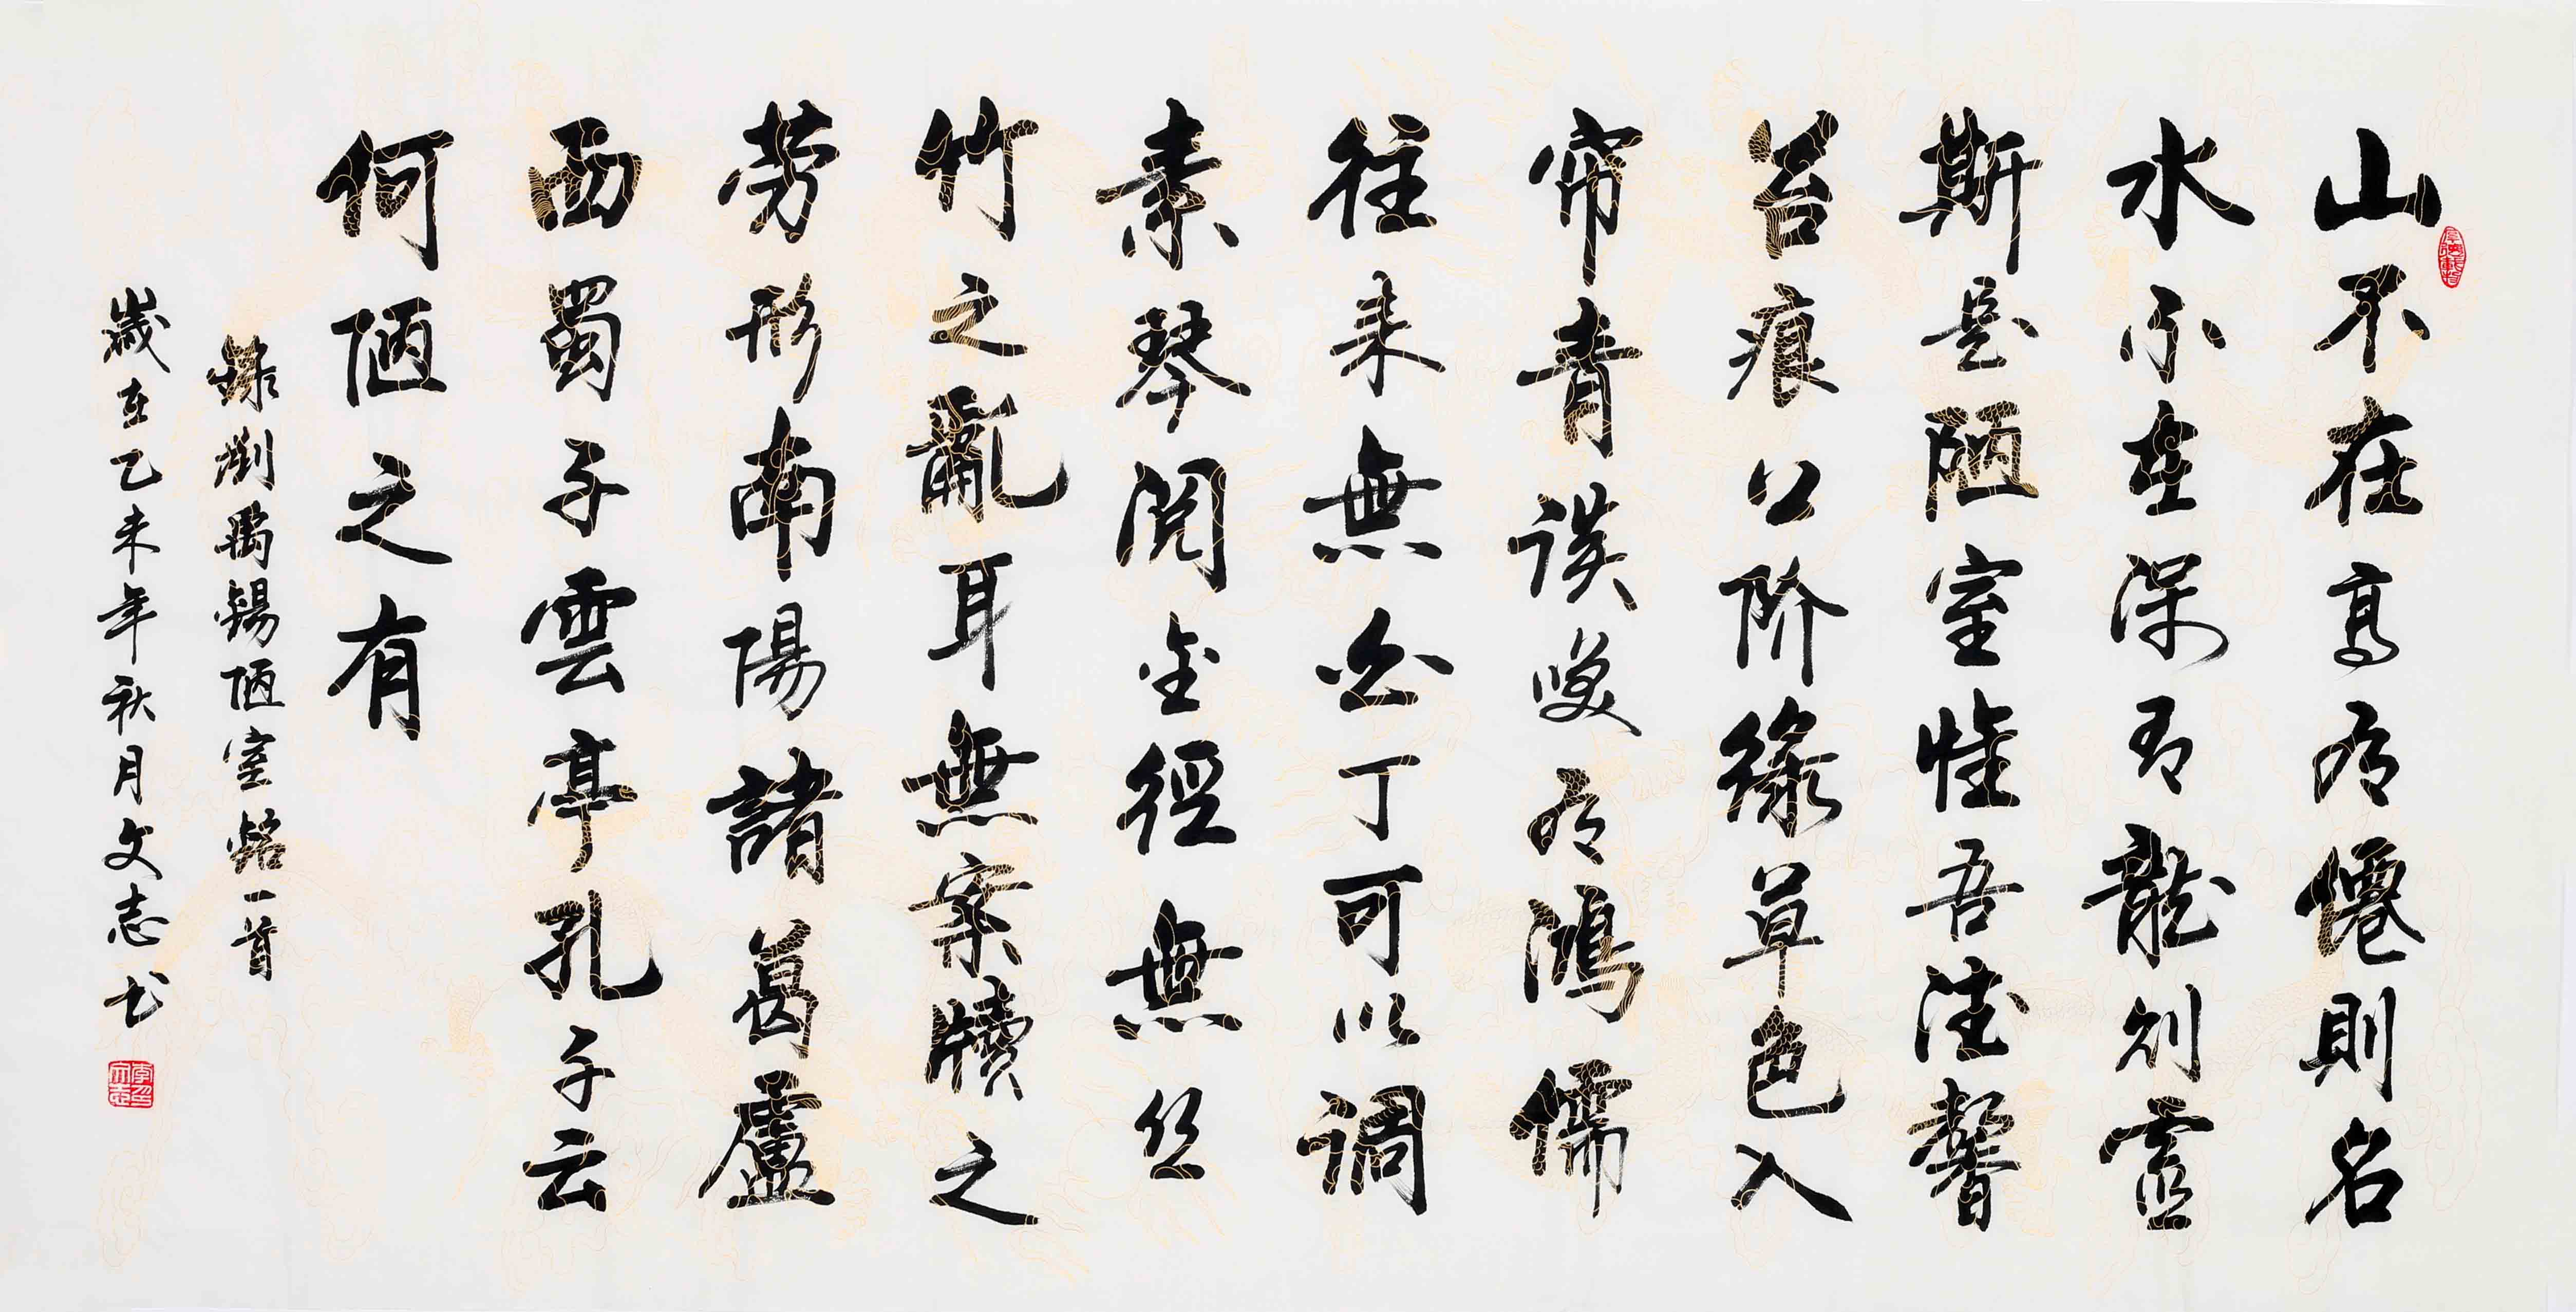 山不在高有僊則名
水不在深有龍则靈
斯是陋室惟吾德馨
苔痕上阶緑草色入
帘青谈咲有鴻儒
往来無白丁可以调
素琴閲金經無丝
竹之亂耳無案牘之
劳形南陽諸葛廬
西蜀子雲亭孔子云
何陋之有
錄劉禹錫陋室銘一首
歲在乙未年秋月文志书